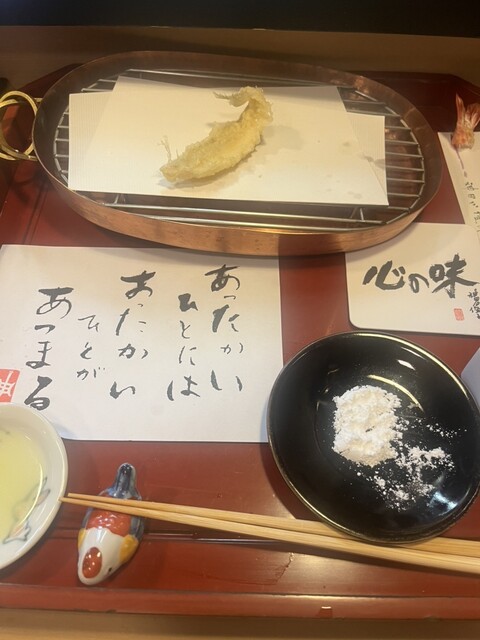 あったかい
ひとには
あったかい
ひとが
あつまる
心の味